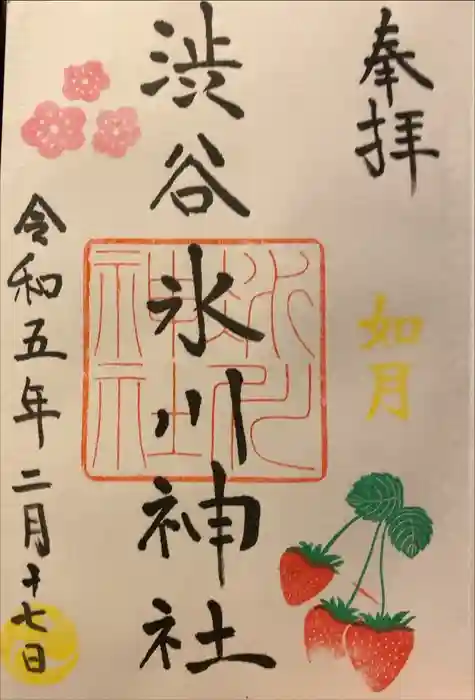 奉拝
如月
渋谷氷川神社
令和五年二月十七日